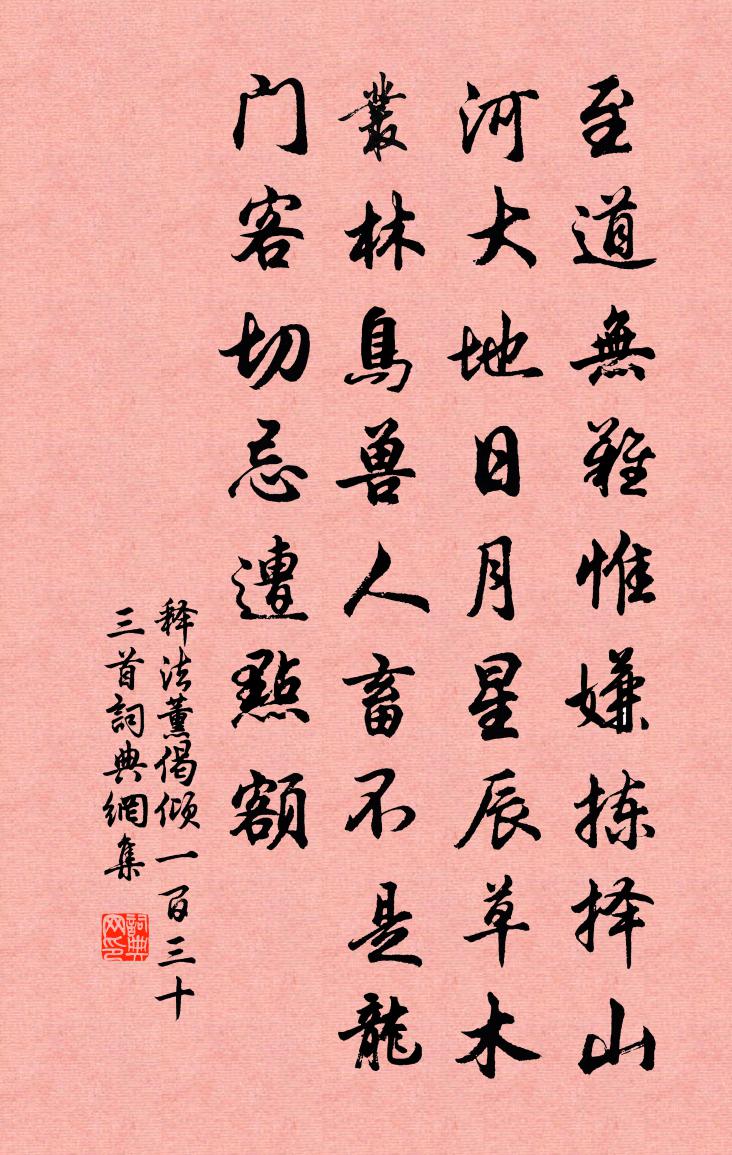 至道無難惟嫌拣择山
河大地日月星辰草木
叢林鳥兽人畜不是龍
门客切忌遭點額
释法薰偈倾一百三十
三首詞典網集
詞典
网印